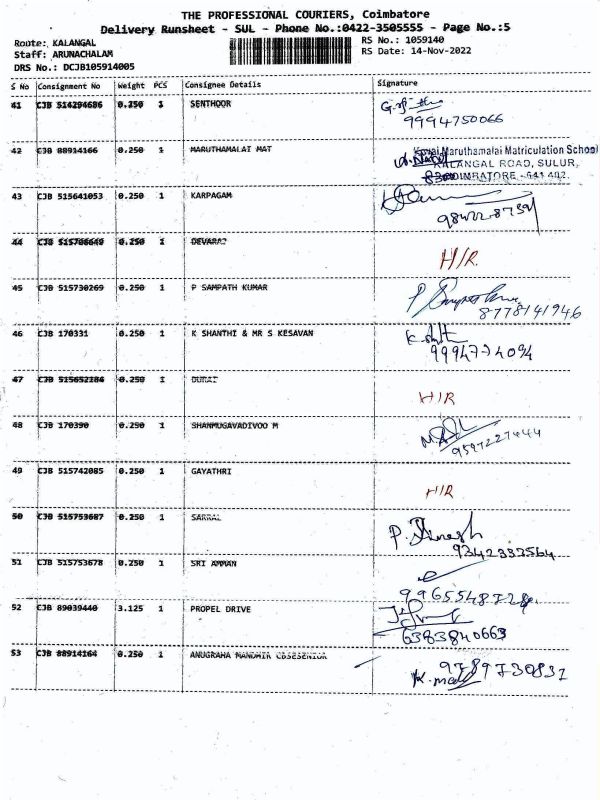 THE PROFESSIONAL COURIERS, Coimbatore
Delivery Runsheet - SUL - Phone No.:0422-3505555 - Page No.:5
Route: KALANGAL
RS No.: 1059140
Staff: ARUNACHALAM
RS Date: 14-Nov-2022
DRS No.: DCJB105914005
S No Consignment No Weight PCS Consignee Details Signature
41 CJB 514294686 0.250 1 SENTHOOR
9994750066
42 CJB 88914166 0.250 1 MARUTHAMALAI MAT
Maruthamalai Matriculation School
KALANGAL ROAD, SULUR,
COIMBATORE - 641 402.
43 CJB 515641053 0.250 1 KARPAGAM
44 CJB 0.250 1 DEVARAJ
H/R
45 CJB 515730269 0.250 1 P SAMPATH KUMAR
8778141946
46 CJB 170331 0.250 1 K SHANTHI & MR S KESAVAN
9994774094
47 CJB 515652184 0.250 1 DURAI
H/R
48 CJB 170390 0.250 1 SHANMUGAVADIVOO M
9597227444
49 CJB 515742085 0.250 1 GAYATHRI
H/R
50 CJB 515753687 0.250 1
P. Dinesh
9342337564
51 CJB 515753678 0.250 1 SRI AMMAN
52 CJB 89039440 3.125 1 PROPEL DRIVE
6383840663
53 CJB 88914164 0.250 1 ANUGRAHA MANDHIR CBSESENIOR
9789730831